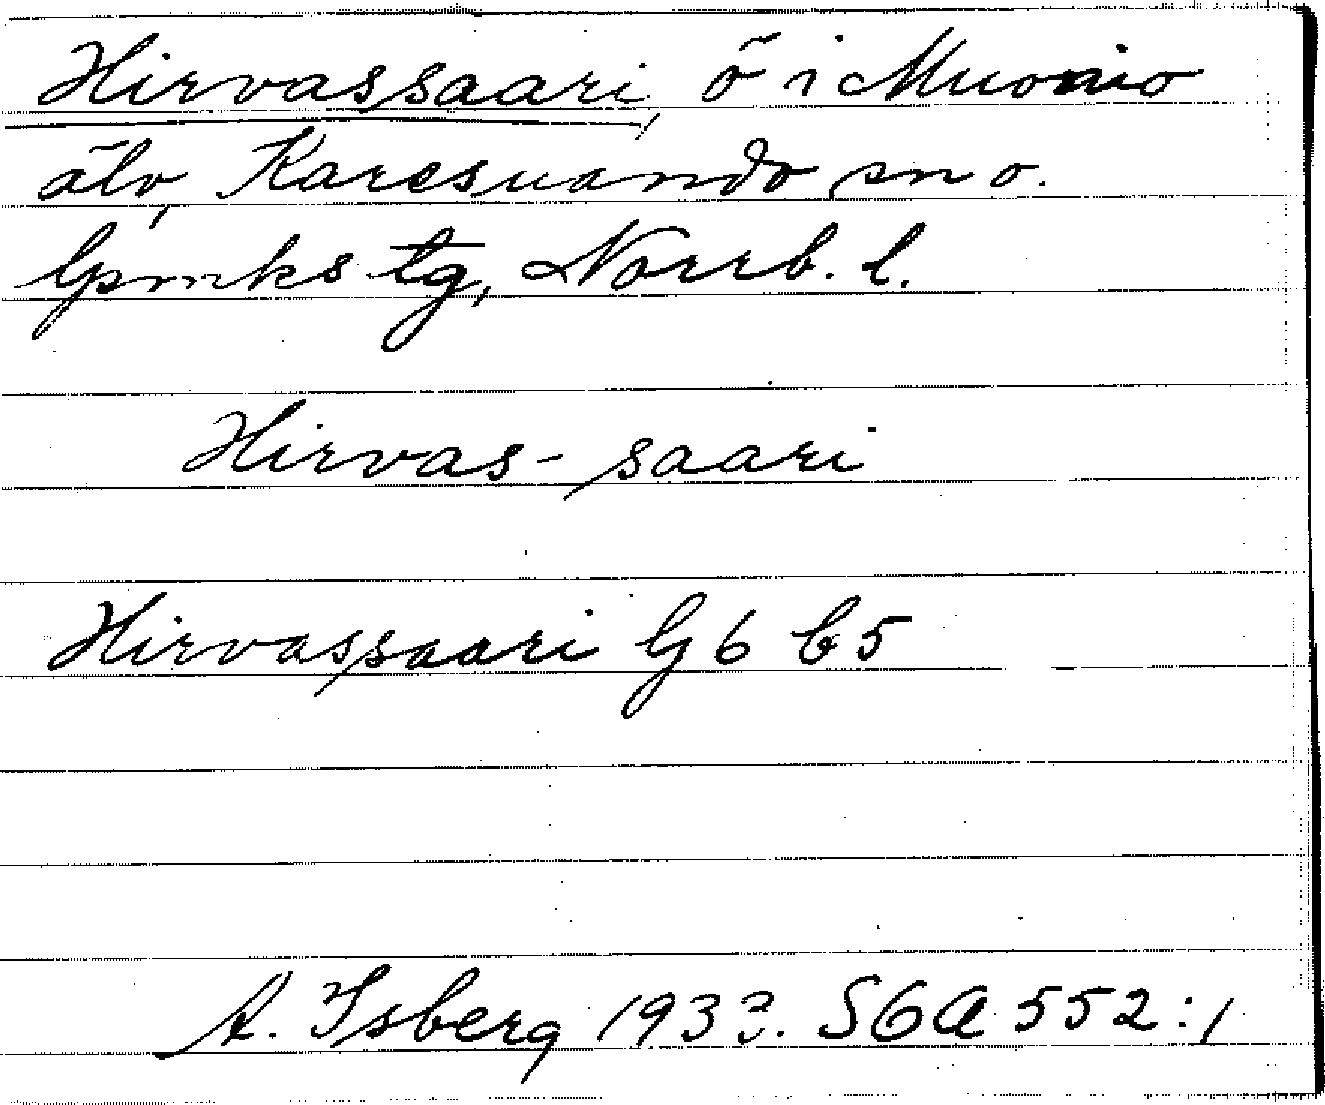 Hirvassaari, ö i Muonio
älv, Karesuando sn o.
lpmks tg, Norrb. l.
Hirvas-saari
Hirvassaari G 6 b 5
A. Isberg 1933. SGA 552:1